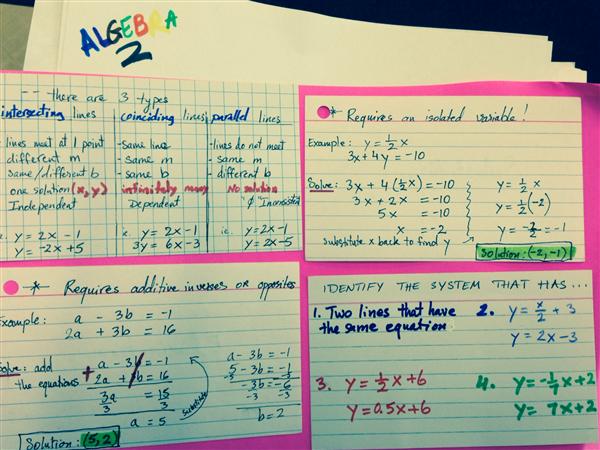 ALGEBRA
2
-- there are 3 types
intersecting lines
lines meet at 1 point
different m
same/different b
one solution (x,y)
Independent
y = 2x - 1
y = -2x + 5
coinciding lines
- same line
- same m
- same b
infinitely many
Dependent
y = 2x - 1
3y = 6x - 3
parallel lines
- lines do not meet
- same m
- different b
No solution
Inconsistent
ie. y = 2x - 1
y = 2x - 5
* Requires an isolated variable!
Example: y = 1/2 x
3x + 4y = -10
Solve: 3x + 4(1/2 x) = -10
3x + 2x = -10
5x = -10
x = -2
substitute x back to find y
y = 1/2 x
y = 1/2(-2)
y = -2/2 = -1
Solution: (-2, -1)
* Requires additive inverses or opposites
Example: a - 3b = -1
2a + 3b = 16
Solve: add
the equations
+ a - 3b = -1
2a + 3b = 16
3a = 15
3 3
a = 5
substitute
a - 3b = -1
5 - 3b = -1
-3b = -6
-3 -3
b = 2
Solution: (5, 2)
IDENTIFY THE SYSTEM THAT HAS...
1. Two lines that have
the same equation
2. y = x/2 + 3
y = 2x - 3
3. y = 1/2 x + 6
y = 0.5x + 6
4. y = -1/7 x + 2
y = 7x + 2